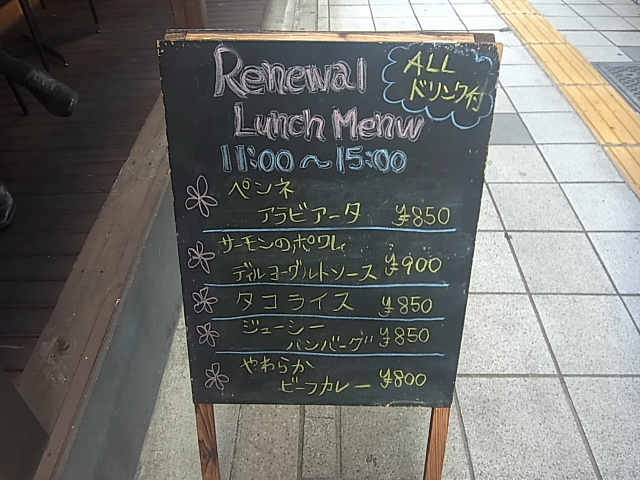 Renewal
Lunch Menu
ALL
ドリンク付
11:00〜15:00
ペンネ
アラビアータ ¥850
サーモンのポワレ
ディルヨーグルトソース ¥900
タコライス ¥850
ジューシー
ハンバーグ ¥850
やわらか
ビーフカレー ¥800